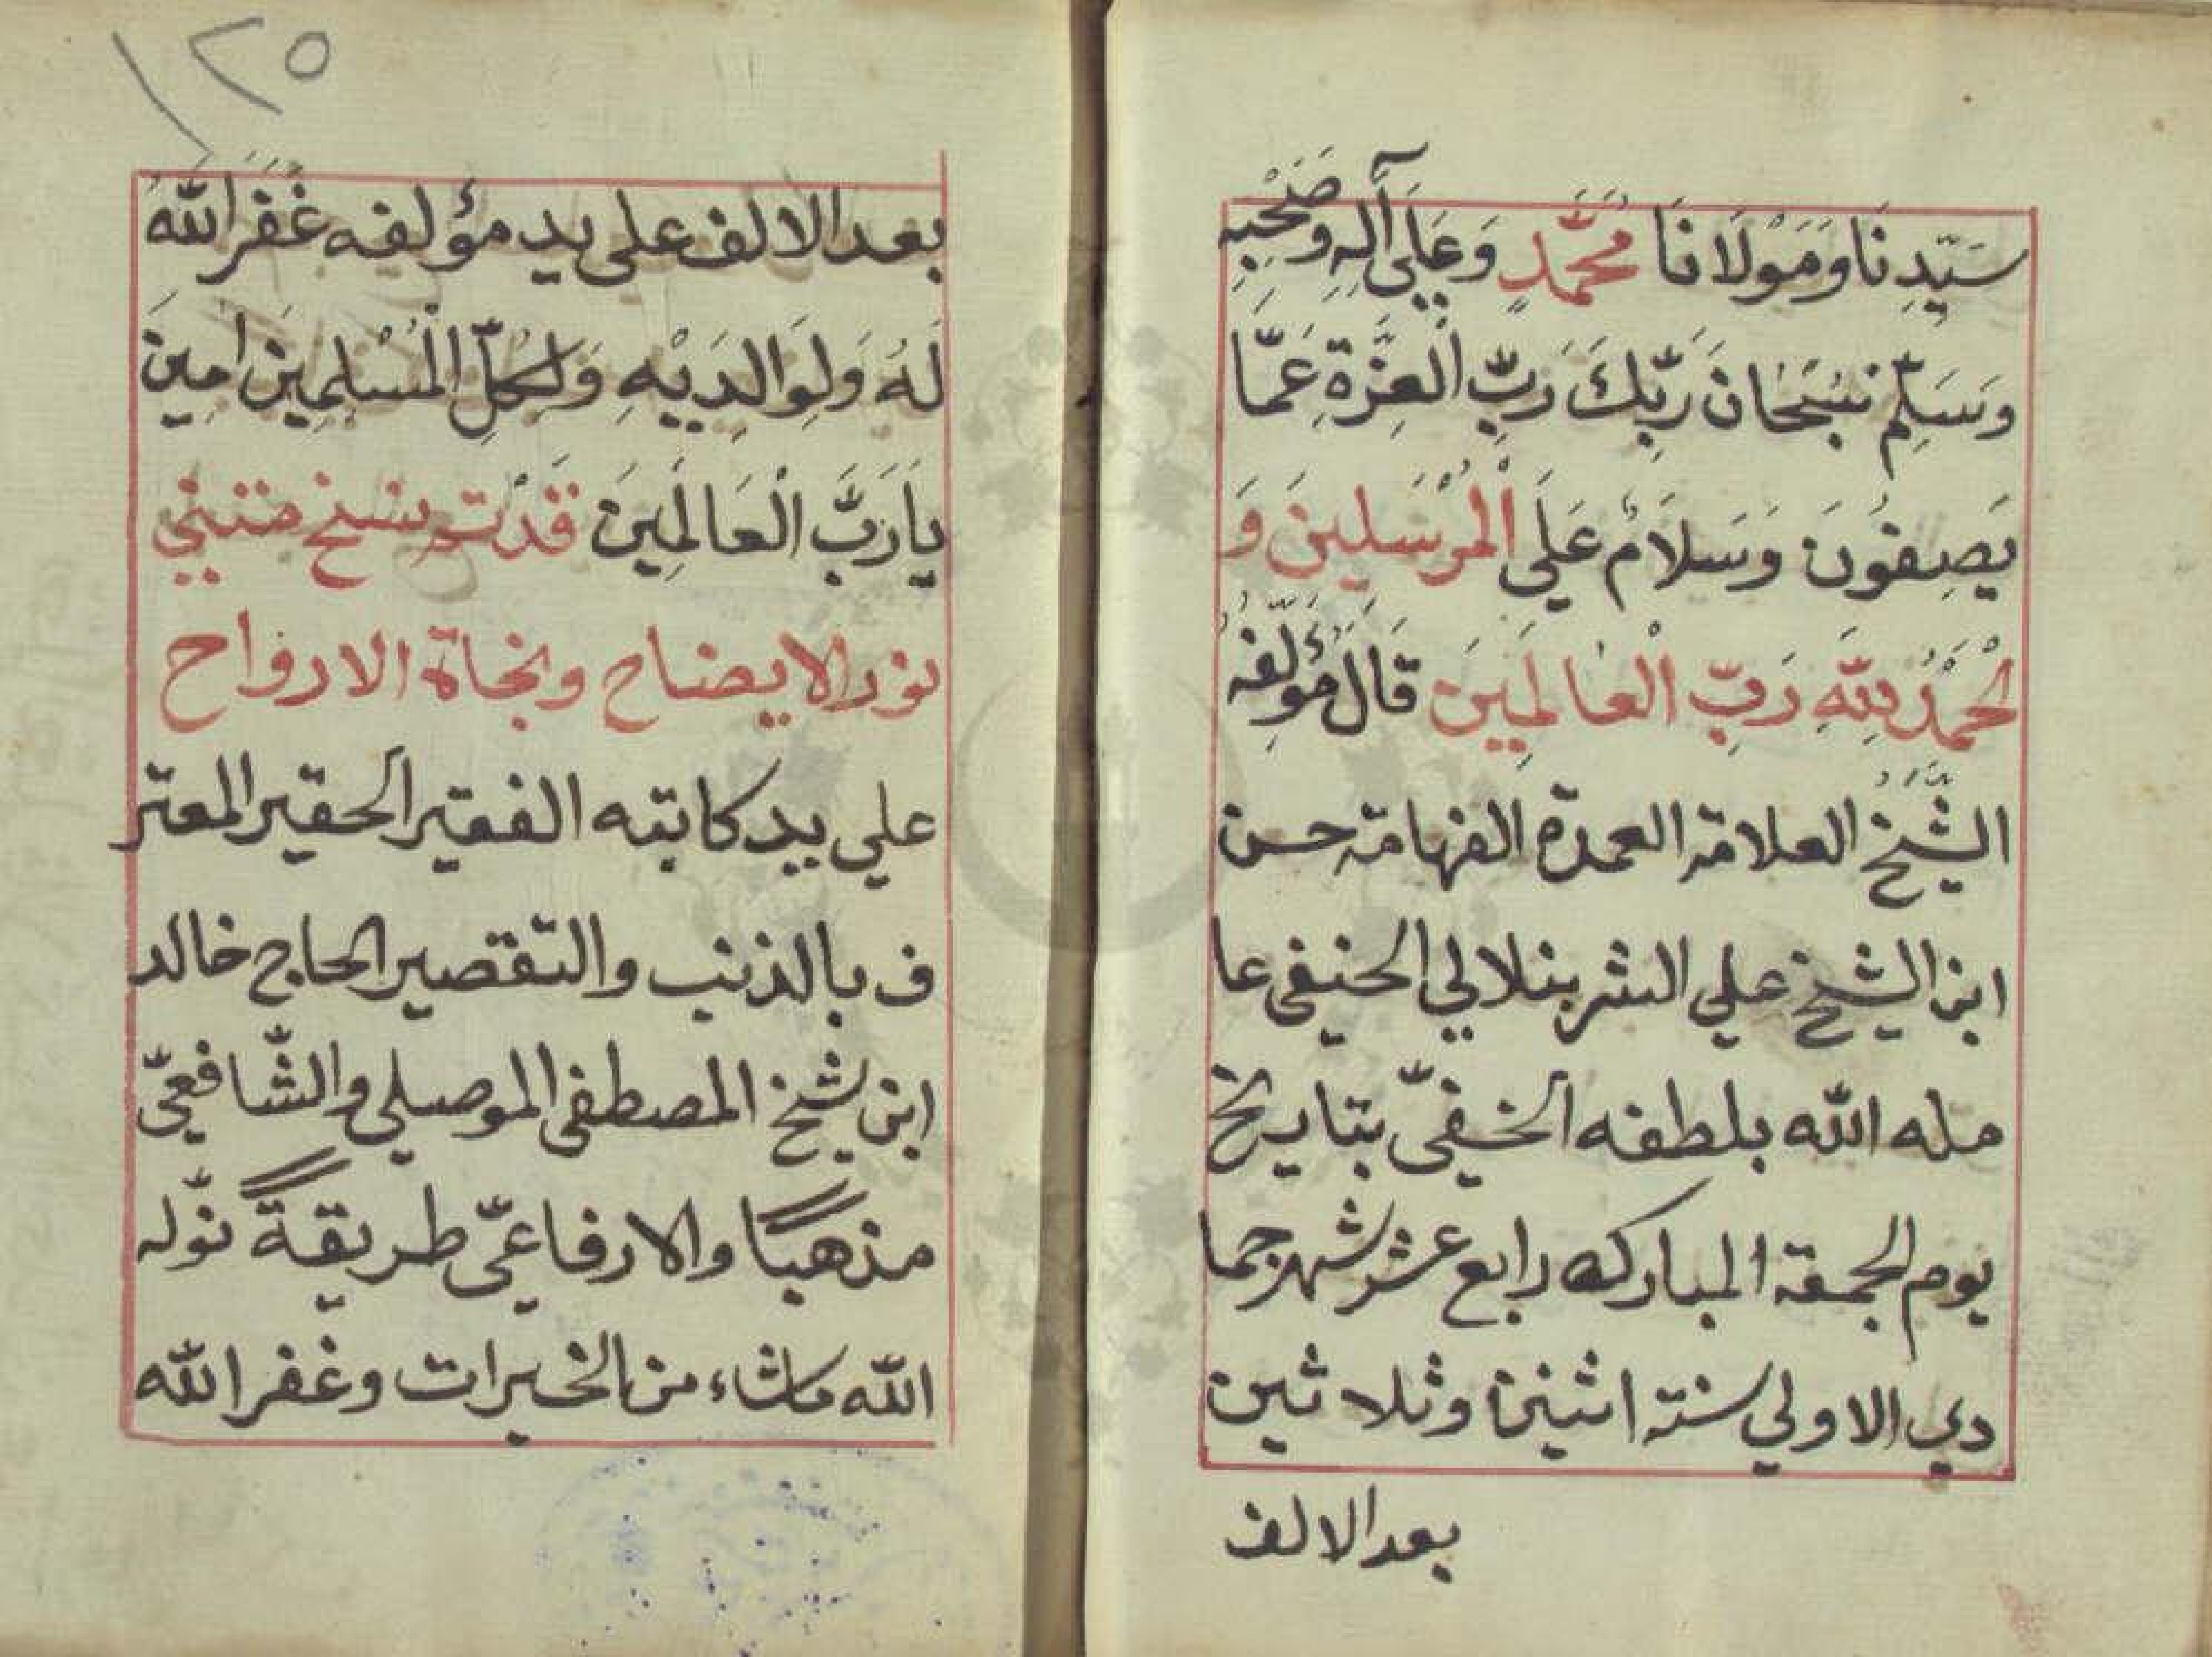 سَيِّدِنَا وَمَوْلَانَا مُحَمَّدٍ وَعَلَى آلِهِ وَصَحْبِهِ
وَسَلِّمْ سُبْحَانَ رَبِّكَ رَبِّ الْعِزَّةِ عَمَّا
يَصِفُونَ وَسَلَامٌ عَلَى الْمُرْسَلِينَ وَ
لْحَمْدُ لِلّٰهِ رَبِّ الْعَالَمِينَ قَالَ مُؤَلِّفُهُ
الشَّيْخُ العلامة العمدة الفهامة حسن
ابن الشيخ علي الشرنبلالي الحنيفى عا
مله الله بلطفه الخفيّ بتاريخ
يوم الجمعة المبارك رابع عشر شهر جما
دي الاولي سنة اثنين وثلاثين
بعد الالف
١٢٥
بعد الالف على يد مؤلفه غَفَرَ اللهُ
لَهُ وَلِوَالِدَيْهِ وَلِكُلِّ الْمُسْلِمِينَ امِينَ
يَا رَبَّ الْعَالَمِينَ قَدْ تم نسخ متني
نور الايضاح ونجاة الارواح
علي يد كاتبه الفقير الحقير المعتر
ف بالذنب والتقصير الحاج خالد
ابن شيخ المصطفى الموصلي والشّافعيّ
مذهبًا والارفاعيّ طريقةً نوّله
الله ماشاء من الخيرات وغفر الله